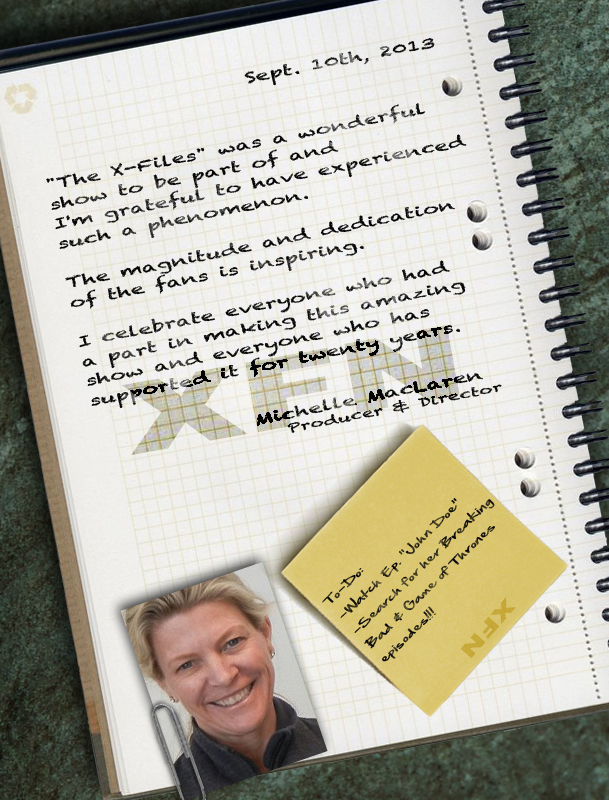 Sept. 10th, 2013
"The X-Files" was a wonderful
show to be part of and
I'm grateful to have experienced
such a phenomenon.
The magnitude and dedication
of the fans is inspiring.
I celebrate everyone who had
a part in making this amazing
show and everyone who has
supported it for twenty years.
XFN
Michelle MacLaren
Producer & Director
To-Do:
-Watch Ep. "John Doe"
-Search for her Breaking
Bad & Game of Thrones
episodes!!!
XFN